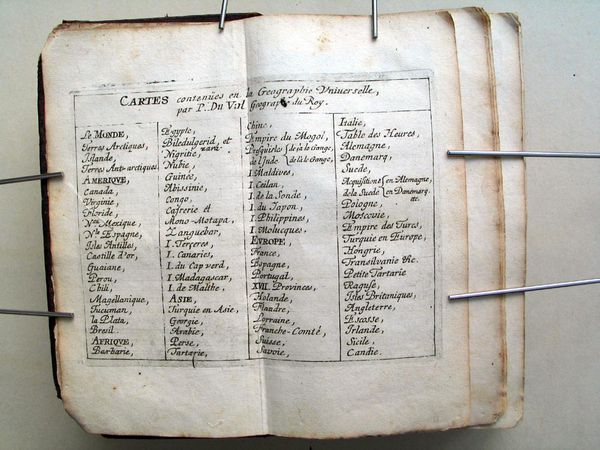 CARTES contenües en la Geographie Vniuerselle,
par P. Du Val Geographe du Roy.
Le MONDE,
Terres Arctiques,
Islande,
Terres Ant-arctiques
AMERIQVE,
Canada,
Virginie,
Floride,
Nau. Mexique,
Nlle Espagne,
Isles Antilles,
Castille d'or,
Guaiane,
Perou,
Chili,
Magellanique,
Tucuman,
la Plata,
Bresil
AFRIQVE,
Barbarie,
Egypte,
Biledulgerid, et
Zara
Nigritie,
Nubie,
Guinée,
Abissinie,
Congo,
Cafrerie et
Mono-Motapa,
Zanguebar,
I. Terceres,
I. Canaries,
I. du Cap verd,
I. Madagascar,
I. de Malthe,
ASIE,
Turquie en Asie,
Georgie,
Arabie,
Perse,
Tartarie,
Chine,
Empire du Mogol,
Presquisles de la le Gange,
de l'Jnde ç. le Gange,
I. Maldives,
I. Ceilan,
I. de la Sonde,
I. du Iapon,
I. Philippines,
I. Molucques,
EVROPE,
France,
Espagne,
Portugal,
XVII. Provinces,
Holande,
Flandre,
Lorraine,
Franche-Comté,
Suisse,
Savoie,
Italie,
Table des Heures,
Alemagne,
Danemarq,
Suede,
Acquisitions en Alemagne,
de la Suede en Danemarq.
etc.
Pologne,
Moscovie,
Empire des Turcs,
Turquie en Europe,
Hongrie,
Transilvanie &c.
Petite Tartarie
Raguse,
Isles Britaniques,
Angleterre,
Escosse,
Irlande,
Sicile,
Candie.